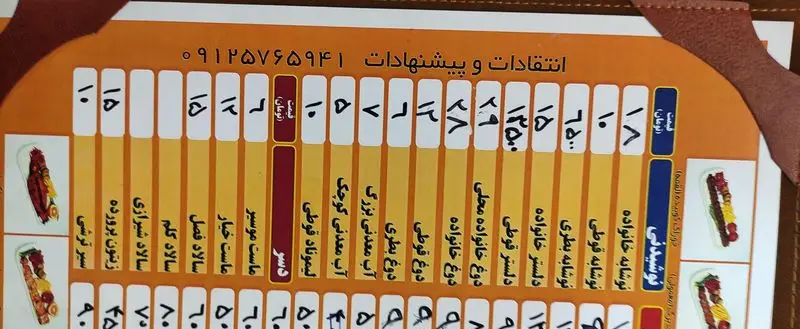 انتقادات و پیشنهادات ۰۹۱۲۵۷۶۵۹۴۱
نوشیدنی قیمت (تومان)
نوشابه خانواده ۱۸
نوشابه قوطی ۱۰
نوشابه بطری ۶۵۰۰
دلستر خانواده ۱۵
دلستر قوطی ۱۳۵۰۰
دوغ خانواده محلی ۲۹
دوغ خانواده ۲۸
دوغ قوطی ۱۲
دوغ بطری ۶
آب معدنی بزرگ ۷
آب معدنی کوچک ۵
لیموناد قوطی ۱۰
دسر قیمت (تومان)
ماست موسیر ۶
ماست خیار ۱۲
سالاد فصل ۱۵
سالاد کلم
سالاد شیرازی
زیتون پرورده ۱۵
سیر ترشی ۱۰
۵۰
۶۰
۶۰
۶۰
۸۰
۷۰
۴۵
۹۰